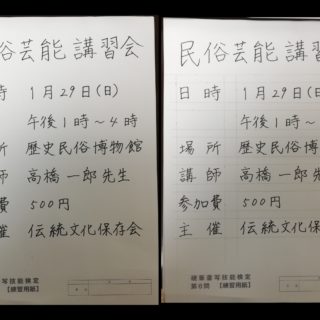 俗芸能講習会
時 1月29日(日)
午後1時～4時
所 歴史民俗博物館
師 高橋一郎先生
費 500円
催 伝統文化保存会
写技能検定
【練習用紙】
民俗芸能講習
日時 1月29日(日)
午後1時～
場所 歴史民俗博
講師 高橋一郎先
参加費 500円
主催 伝統文化保
硬筆書写技能検定
第6問 【練習用紙】